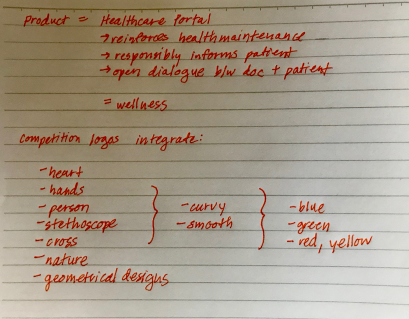 Product = Healthcare Portal
→ reinforces health maintenance
→ responsibly informs patient
→ open dialogue b/w doc + patient
= wellness
Competition logos integrate:
- heart
- hands
- person
- stethoscope
- cross
- nature
- geometrical designs
- curvy
- smooth
- blue
- green
- red, yellow